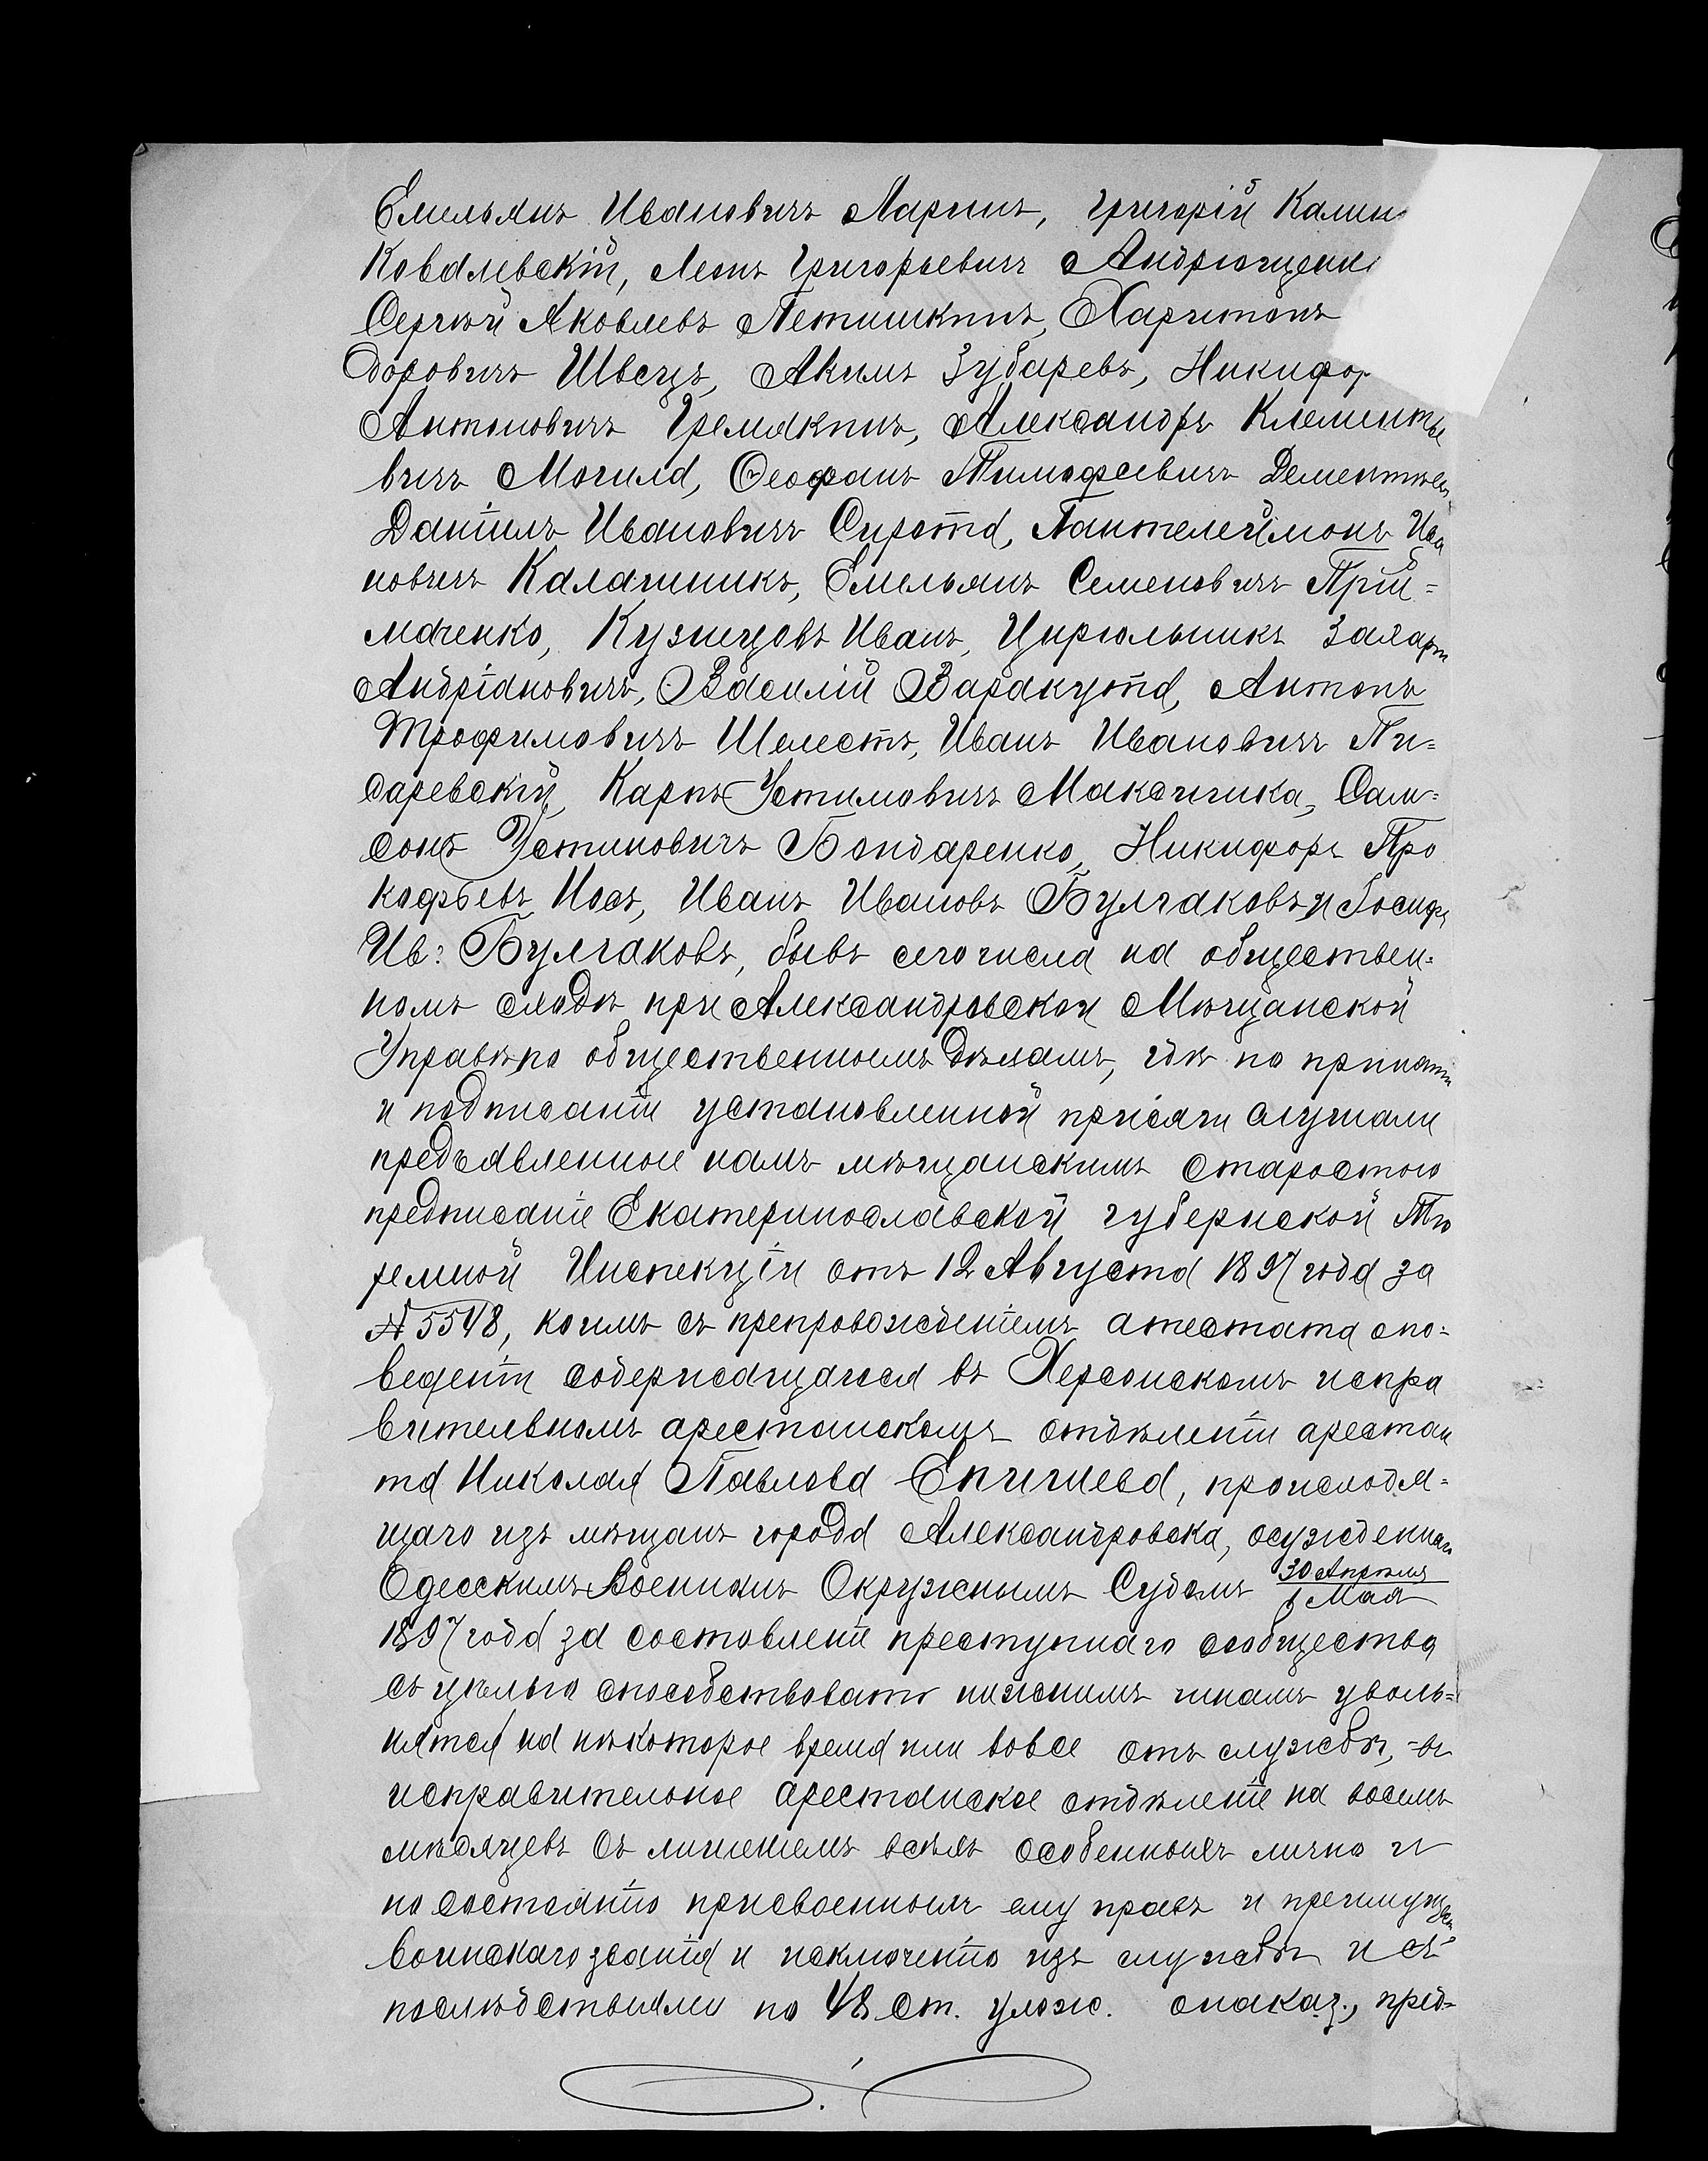 Емельянъ Ивановичъ Ларинъ, Григорій Калин
Ковалевскій, Леонъ Григорьевичъ Андрющенк
Сергѣй Яковлевъ Летишкинъ, Харитонъ
доровичъ Швецъ, Акимъ Зубаревъ, Никифор
Антоновичъ Гремякинъ, Александръ Клементье
вичъ Могила, Ѳеофанъ Тимофеевичъ Дементьев
Даніилъ Ивановичъ Сирота, Пантелеймонъ Ива
новичъ Калашникъ, Емельянъ Семеновичъ Прій=
маченко, Кузнецовъ Иванъ, Цирюльникъ Захарій
Андріановичъ, Василій Варакута, Антонъ
Трофимовичъ Шелестъ, Иванъ Ивановичъ Пи=
саревскій, Карпъ Устимовичъ Максичика, Сам=
сонъ Устиновичъ Бондаренко, Никифоръ Про
кофьевъ Носъ, Иванъ Ивановъ Булгаковъ и Іосифъ
Ив: Булгаковъ, бывъ сего числа на обществен=
номъ сходѣ при Александровской Мѣщанской
Управѣ по общественнымъ дѣламъ, гдѣ по принятіи
и подписаніи установленной присяги слушали
предъявленное намъ мѣщанскимъ старостою
предписаніе Екатеринославской губернской Тю
ремной Инспекціи отъ 12 Августа 1897 года за
№ 5548, коимъ съ препровожденіемъ атестата опо=
веденіи содержащагося въ Херсонскомъ испра
вительномъ арестанскомъ отдѣленіи арестан
та Николая Павлова Епишева, происходя=
щаго изъ мѣщанъ города Александровска, осужденнаго
Одесскимъ Военнымъ Окружнымъ Судомъ 30 Апрѣля
1 Мая
1897 года за составленіе преступнаго сообщества
съ цѣлью способствовать нижнимъ чинамъ уволь=
нятся на нѣкоторое время или вовсе отъ службы, въ
исправительное арестанское отдѣленіе на восемь
мѣсяцевъ съ лишеніемъ всѣхъ особенныхъ лично и
по состоянію присвоенныхъ ему правъ и преимуществ
воинскаго званія и исключенію изъ службы и съ
послѣдствіями по 48 ст. улож. онаказ., пред=